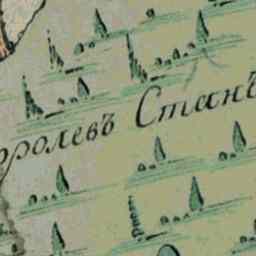 оролевъ Станъ